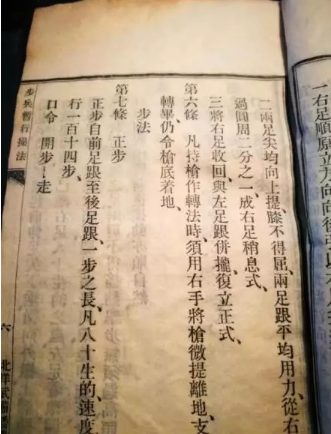 一右足順原立方向向後
二兩足尖均向上提、膝不得屈、兩足跟平均用力、從右
過圓周二分之一、成右足稍息式、
三將右足收回、與左足跟併攏、復立正式、
第六條 凡持槍作轉法時、須用右手將槍微提離地、支
轉畢仍令槍底着地、
步法
第七條 正步
正步自前足跟至後足跟、一步之長、凡八十生的、速度
行一百十四步、
口令 開步—走
步兵暫行操法
六
北洋武備